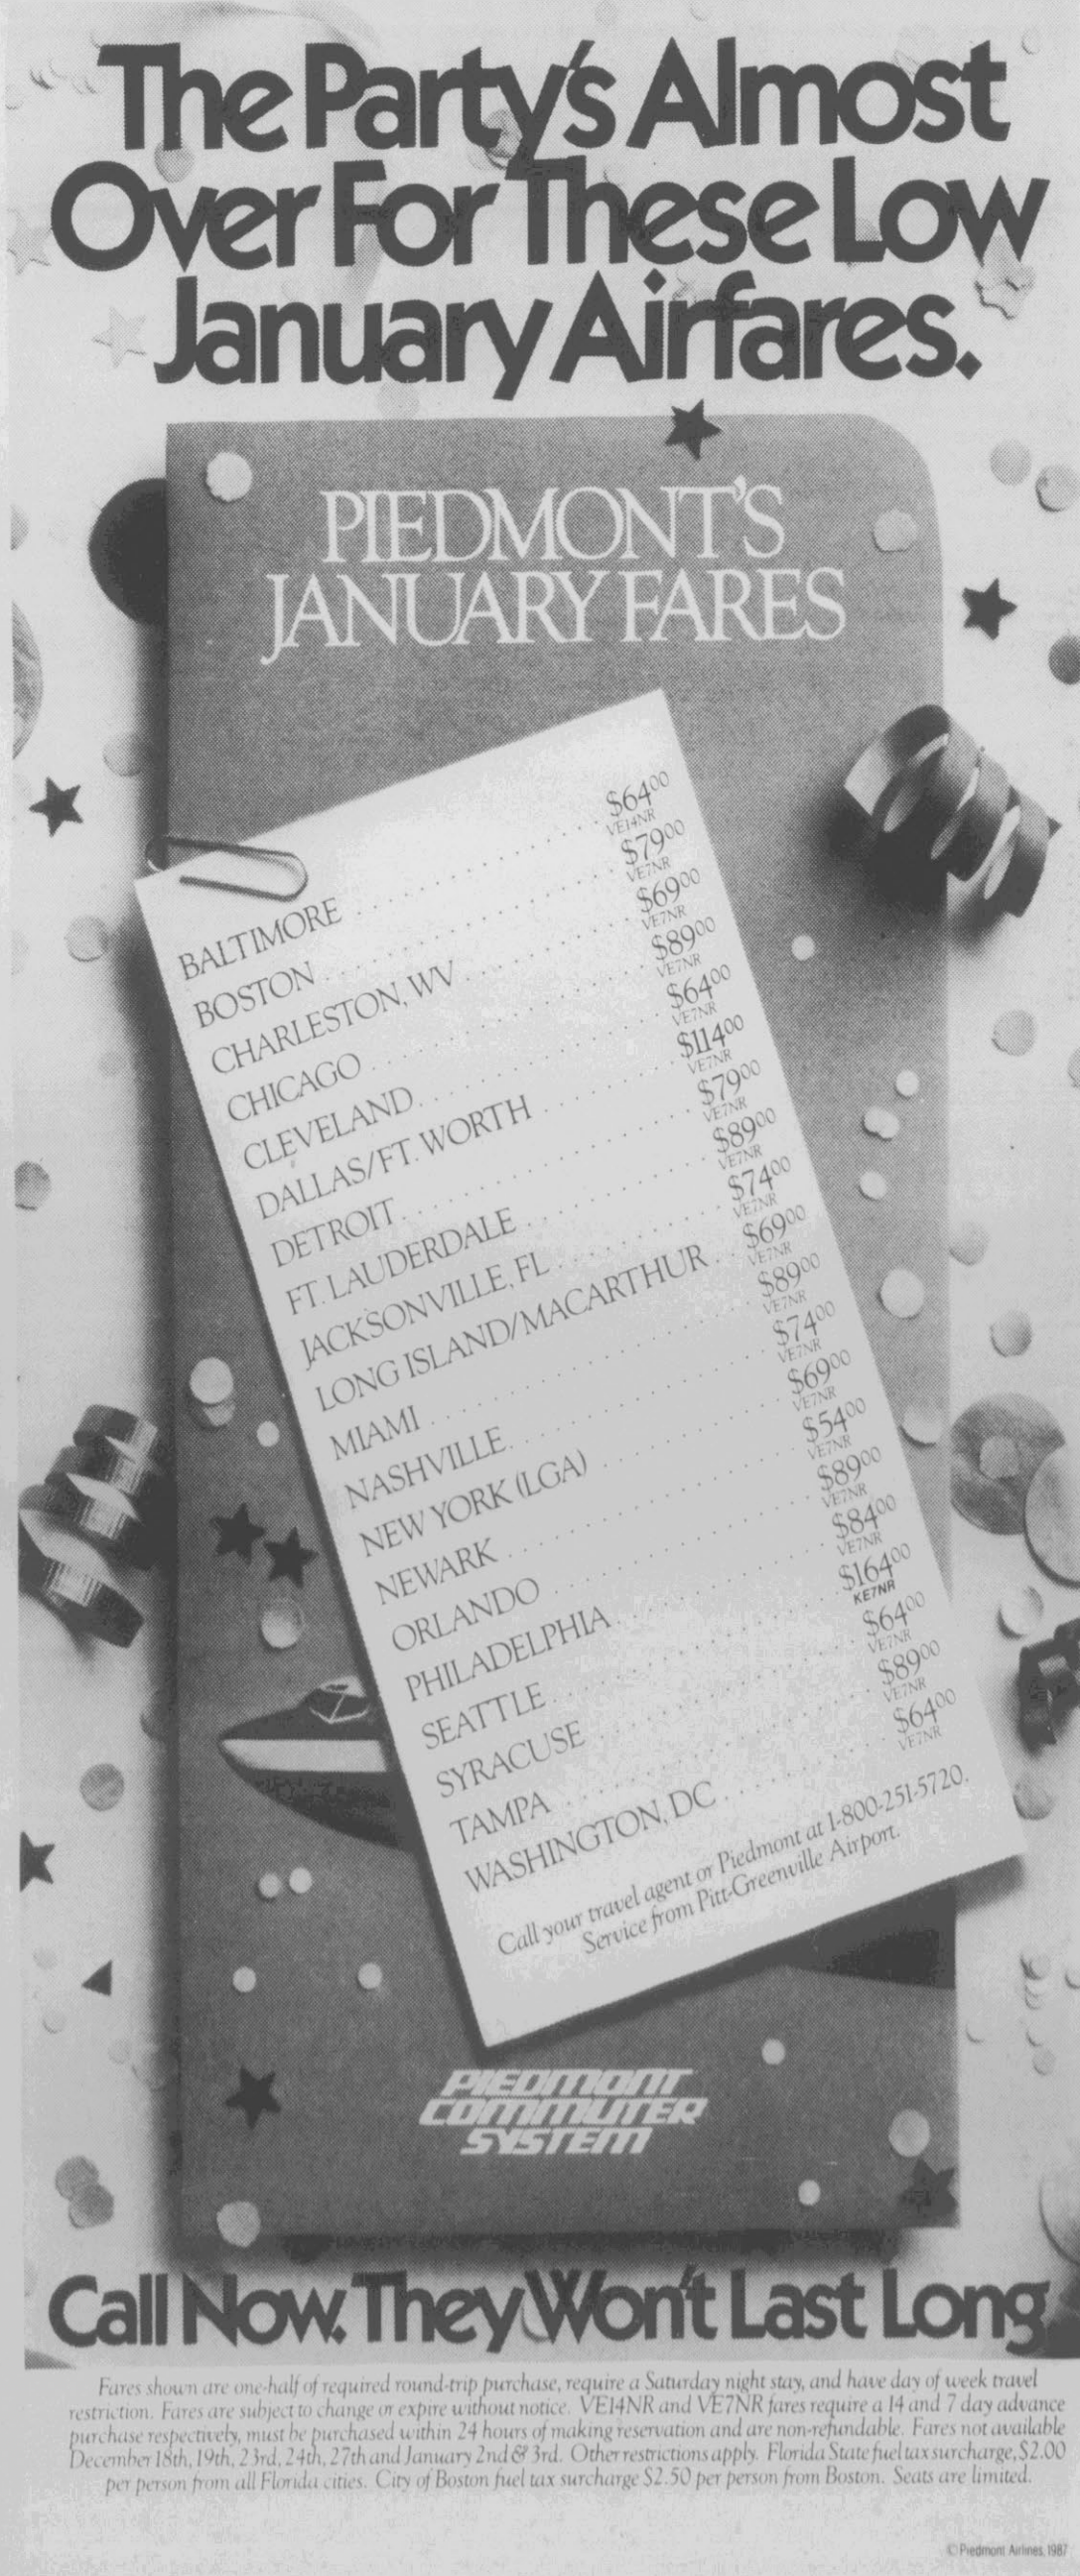 The Party's Almost
Over For These Low
January Airfares.
PIEDMONT'S
JANUARY FARES
BALTIMORE . . . . . . . . . . . . . . . . $64 00
VE14NR
BOSTON . . . . . . . . . . . . . . . . $79 00
VE7NR
CHARLESTON, WV . . . . . . . . . . . . $69 00
VE7NR
CHICAGO . . . . . . . . . . . . . . . . $89 00
VE7NR
CLEVELAND . . . . . . . . . . . . . . . $64 00
VE7NR
DALLAS/FT. WORTH . . . . . . . . . $114 00
VE7NR
DETROIT . . . . . . . . . . . . . . . . $79 00
VE7NR
FT. LAUDERDALE . . . . . . . . . . . $89 00
VE7NR
JACKSONVILLE, FL . . . . . . . . . . $74 00
VE7NR
LONG ISLAND/MACARTHUR . . $69 00
VE7NR
MIAMI . . . . . . . . . . . . . . . . . $89 00
VE7NR
NASHVILLE . . . . . . . . . . . . . . . $74 00
VE7NR
NEW YORK (LGA) . . . . . . . . . . . $69 00
VE7NR
NEWARK . . . . . . . . . . . . . . . . $54 00
VE7NR
ORLANDO . . . . . . . . . . . . . . . $89 00
VE7NR
PHILADELPHIA . . . . . . . . . . . . $84 00
VE7NR
SEATTLE . . . . . . . . . . . . . . . . $164 00
KE7NR
SYRACUSE . . . . . . . . . . . . . . . $64 00
VE7NR
TAMPA . . . . . . . . . . . . . . . . . $89 00
VE7NR
WASHINGTON, DC . . . . . . . . . . $64 00
VE7NR
Call your travel agent or Piedmont at 1-800-251-5720.
Service from Pitt-Greenville Airport.
PIEDMONT
COMMUTER
SYSTEM
Call Now. They Won't Last Long
Fares shown are one-half of required round-trip purchase, require a Saturday night stay, and have day of week travel
restriction. Fares are subject to change or expire without notice. VE14NR and VE7NR fares require a 14 and 7 day advance
purchase respectively, must be purchased within 24 hours of making reservation and are non-refundable. Fares not available
December 18th, 19th, 23rd, 24th, 27th and January 2nd & 3rd. Other restrictions apply. Florida State fuel tax surcharge, $2.00
per person from all Florida cities. City of Boston fuel tax surcharge $2.50 per person from Boston. Seats are limited.
© Piedmont Airlines, 1987